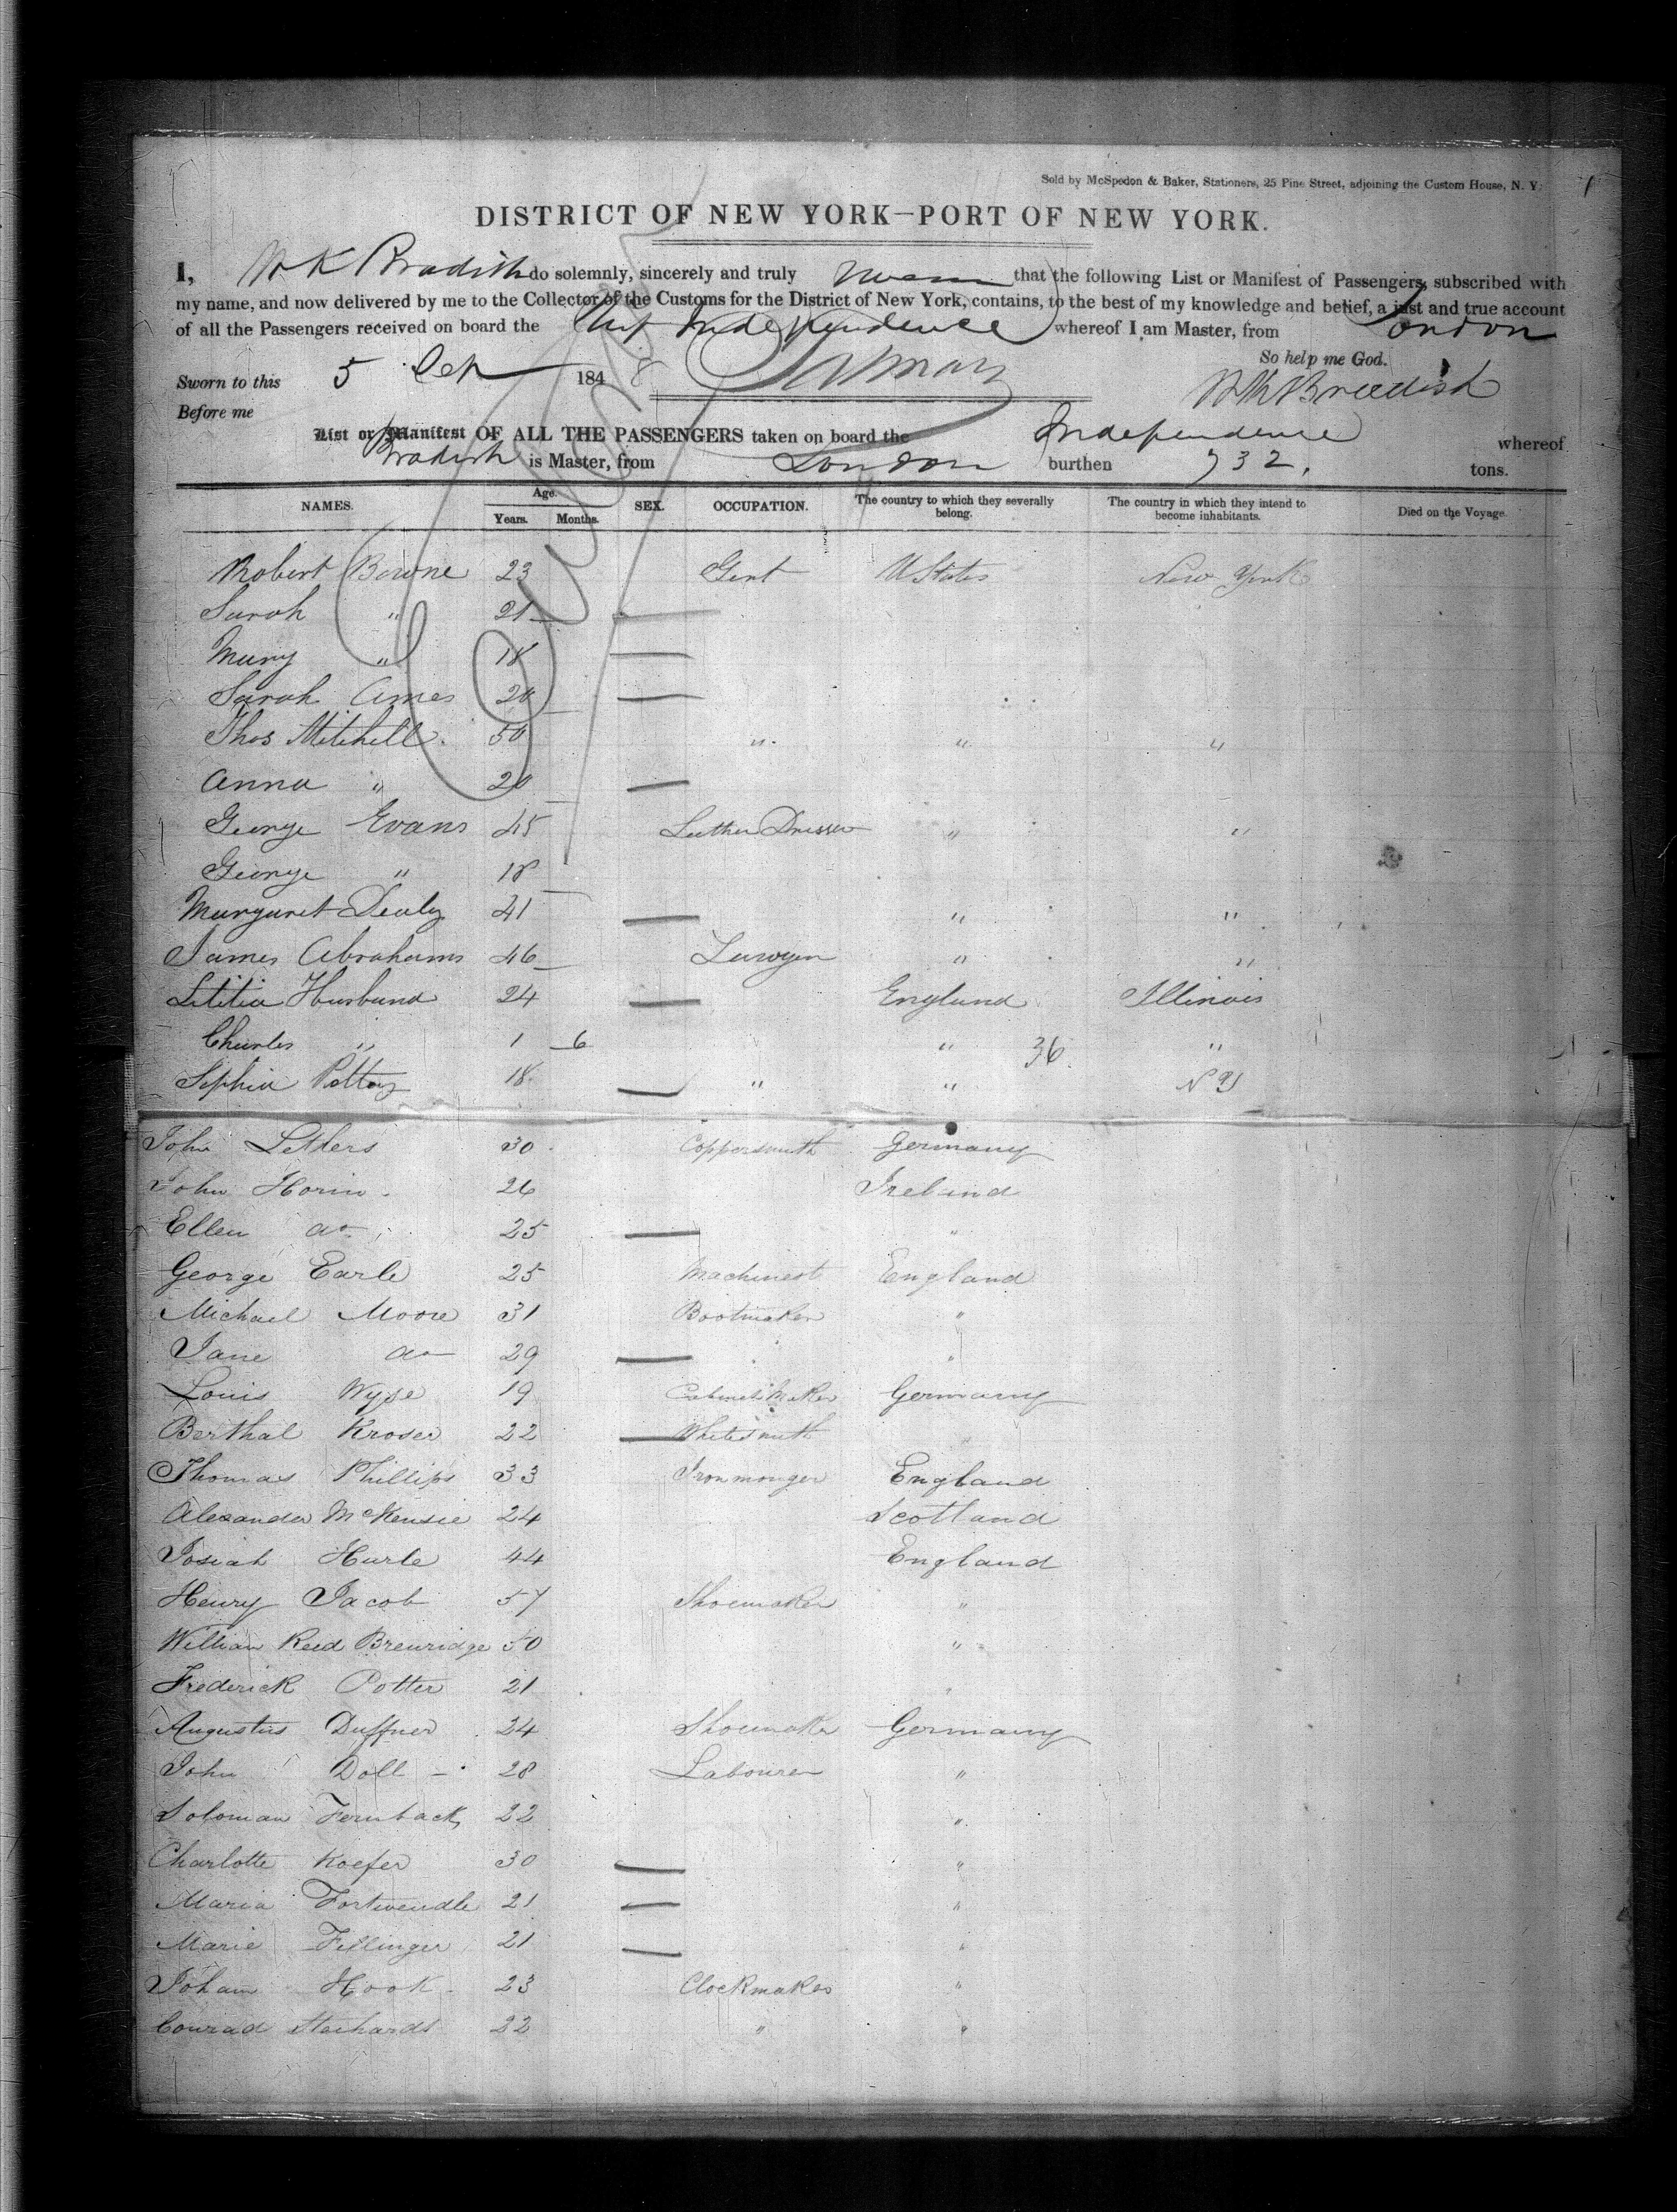 Sold by McSpedon & Baker, Stationers, 25 Pine Street, adjoining the Custom House, N. Y. 1
DISTRICT OF NEW YORK—PORT OF NEW YORK.
I, W K Bradish do solemnly, sincerely and truly swear that the following List or Manifest of Passengers, subscribed with
my name, and now delivered by me to the Collector of the Customs for the District of New York, contains, to the best of my knowledge and belief, a just and true account
of all the Passengers received on board the Ship Independence whereof I am Master, from London
So help me God.
Sworn to this 5 Sep 1848 W K Bradish
Before me
List or Manifest OF ALL THE PASSENGERS taken on board the Independence whereof
Bradish is Master, from London burthen 732. tons.
NAMES. Age. Years. Months. SEX. OCCUPATION. The country to which they severally belong. The country in which they intend to become inhabitants. Died on the Voyage.
Robert Bowne 23 Gent U States New York
Sarah " 21
Mary " 18
Sarah Ames 20
Thos Mitchell 50 " " "
Anna " 20
George Evans 45 Leather Dresser " "
George " 18
Margaret Dealy 41 " "
James Abrahams 46 Lawyer " "
Letitia Husband 24 England Illinois
Charles " 1 6 " 36 "
Sophia 18 " " N Y
John Lethers 30 Coppersmith Germany
John Horin 26 Ireland
Ellen do 25 "
George Earle 25 Machinest England
Michael Moore 31 Bootmaker "
Jane do 29 "
Louis Wyse 19 Cabinet Maker Germany
Berthal Kroser 22 Whitesmith
Thomas Phillips 33 Ironmonger England
Alexander McKensie 24 Scotland
Josiah Hurle 44 England
Henry Jacob 57 Shoemaker "
William Reed Brewridge 50 "
Frederick Potter 21 "
Augustus Duffner 24 Shoemaker Germany
John Doll 28 Labourer "
Soloman Fernback 22 "
Charlotte Koefer 30 "
Maria Fortwendle 21 "
Marie Fillinger 21 "
Johann Hook 23 Clockmaker "
Conrad 22 " "